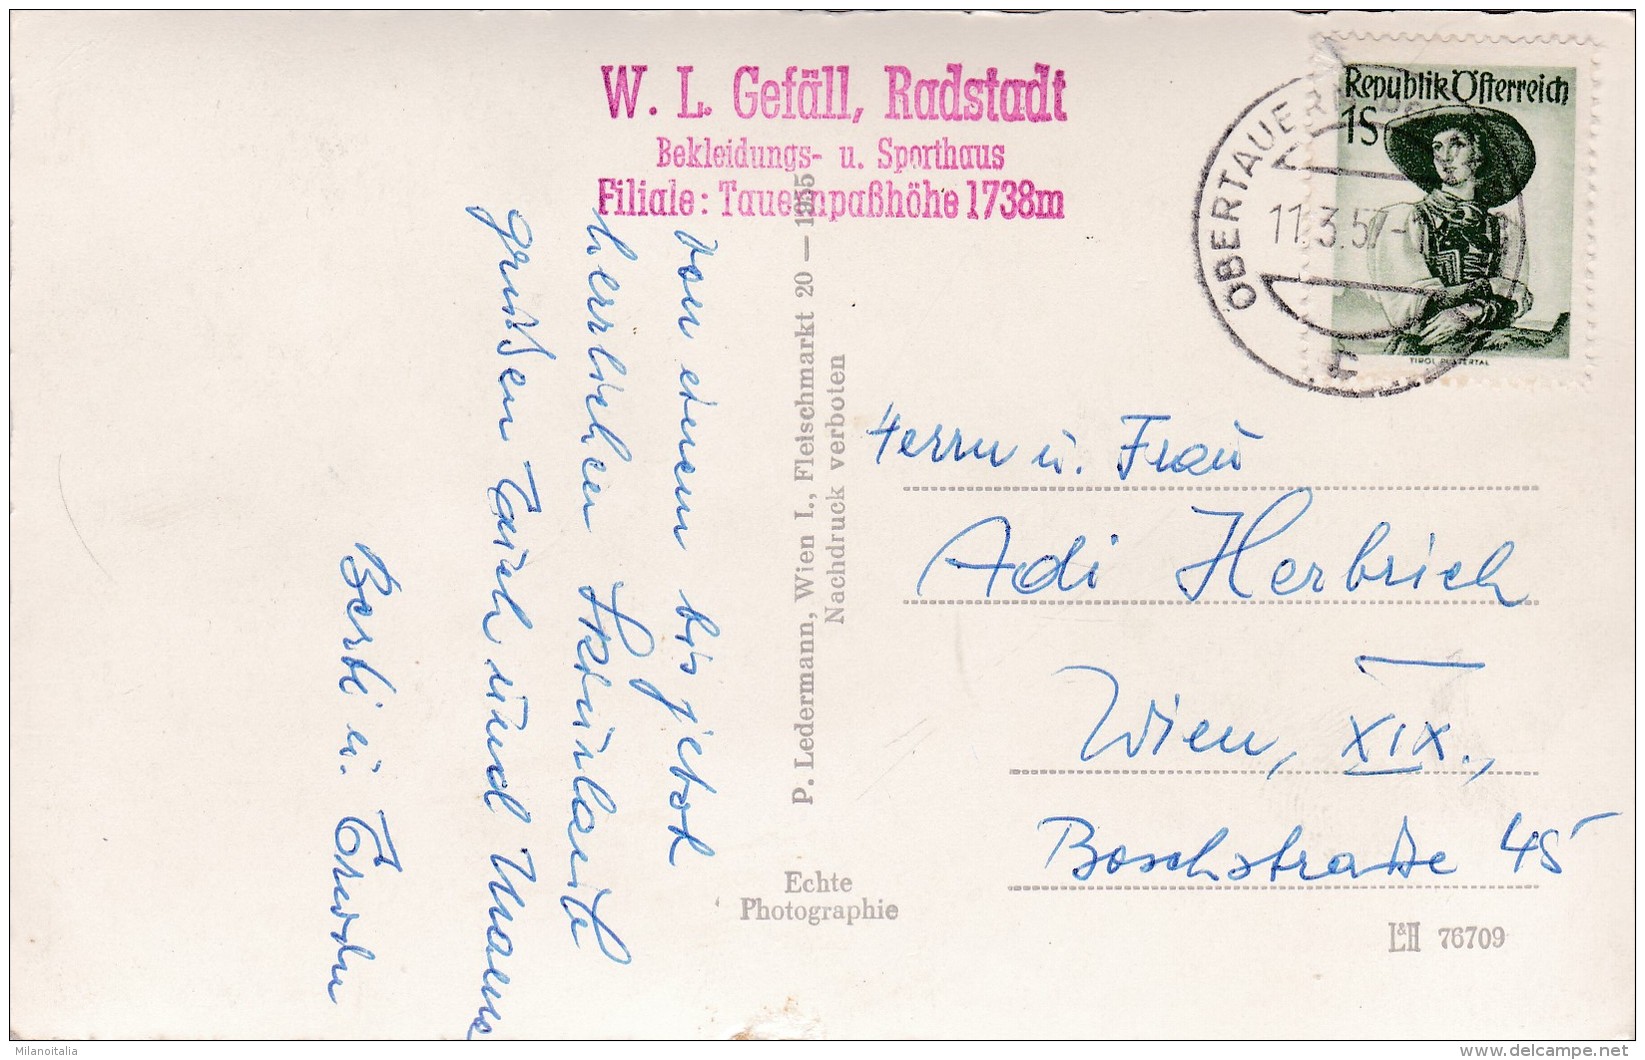 W. L. Gefäll, Radstadt
Bekleidungs- u. Sporthaus
Filiale: Tauernpaßhöhe 1738m
Republik Österreich
1S
TIROL PUSTERTAL
OBERTAUERN
11.3.57
Von einem bis jetzt
herrlichen Skiurlaub
grüßen Euch und Mama
Berti u.
P. Ledermann, Wien I., Fleischmarkt 20 — 1955
Nachdruck verboten
Herrn u. Frau
Adi Herbrich
Wien, XIX.,
Boschstraße 45
Echte
Photographie
L&H 76709
Milanoitalia
delcampe.net